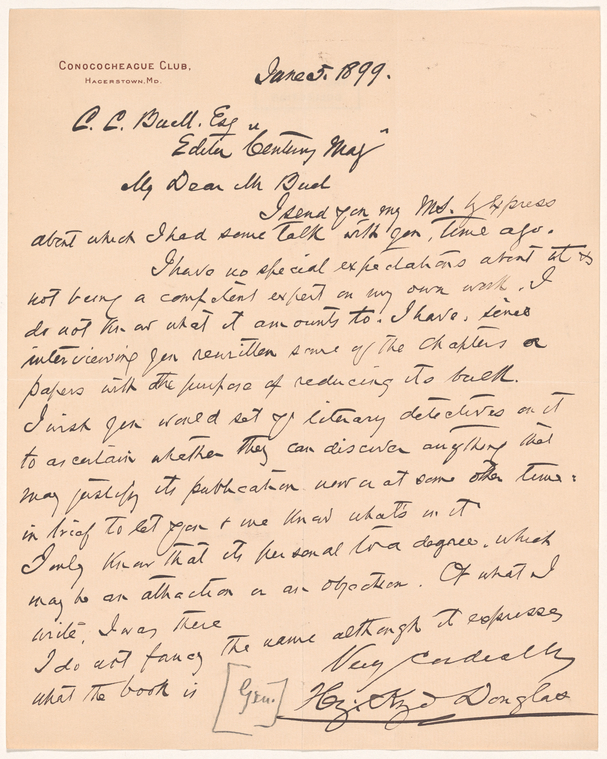 CONOCOCHEAGUE CLUB,
HAGERSTOWN, MD.
June 5. 1899.
C. C. Buell. Esq
Editor Century Mag
My Dear Mr Buel
I send you my MS. by Express
about which I had some talk with you, time ago.
I have no special expectations about it &
not being a competent expert on my own work. I
do not know what it amounts to. I have, since
interviewing you rewritten some of the chapters or
papers with the purpose of reducing its bulk.
I wish you would set yr literary detectives on it
to ascertain whether they can discover anything that
may justify its publication now or at some other time:
in brief to let you & me know what's in it
I only know that its personal to a degree, which
may be an attraction or an objection. Of what I
write, I was there
I do not fancy the name although it expresses
what the book is
Very Cordially
[Gen.] Hy. Kyd Douglas